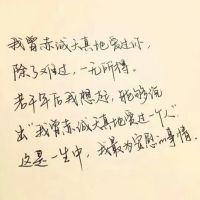 我曾赤诚天真地爱过你，
除了难过，一无所得。
若干年后我想起，能够说
出“我曾赤诚天真地爱过一个人”
这是一生中，我最为安慰的事情。